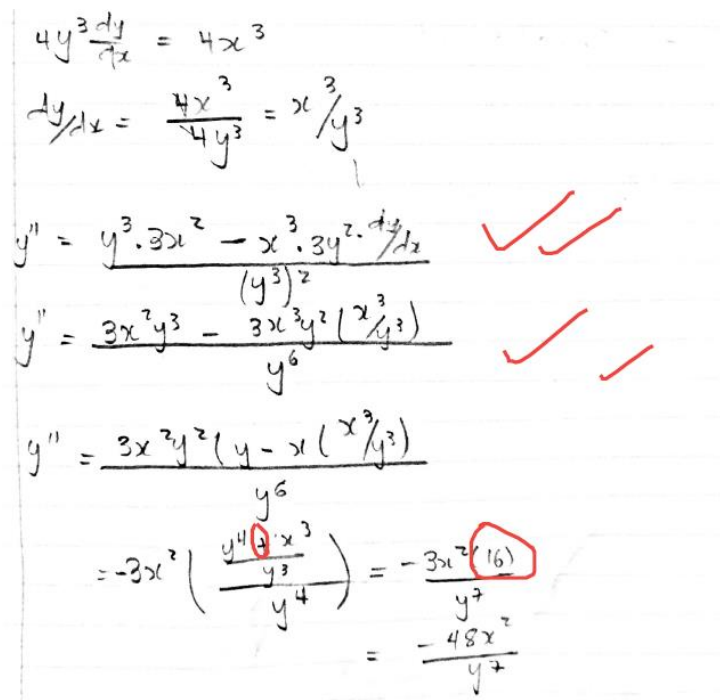 4y³ dy/dx = 4x³
dy/dx = 4x³/4y³ = x³/y³
y'' = (y³·3x² − x³·3y²·dy/dx)/(y³)²
y'' = (3x²y³ − 3x³y²(x³/y³))/y⁶
y'' = (3x²y²(y − x(x³/y³))/y⁶
= −3x²(((y⁴ + x³)/y³)/y⁴) = −3x²(16)/y⁷
= −48x²/y⁷